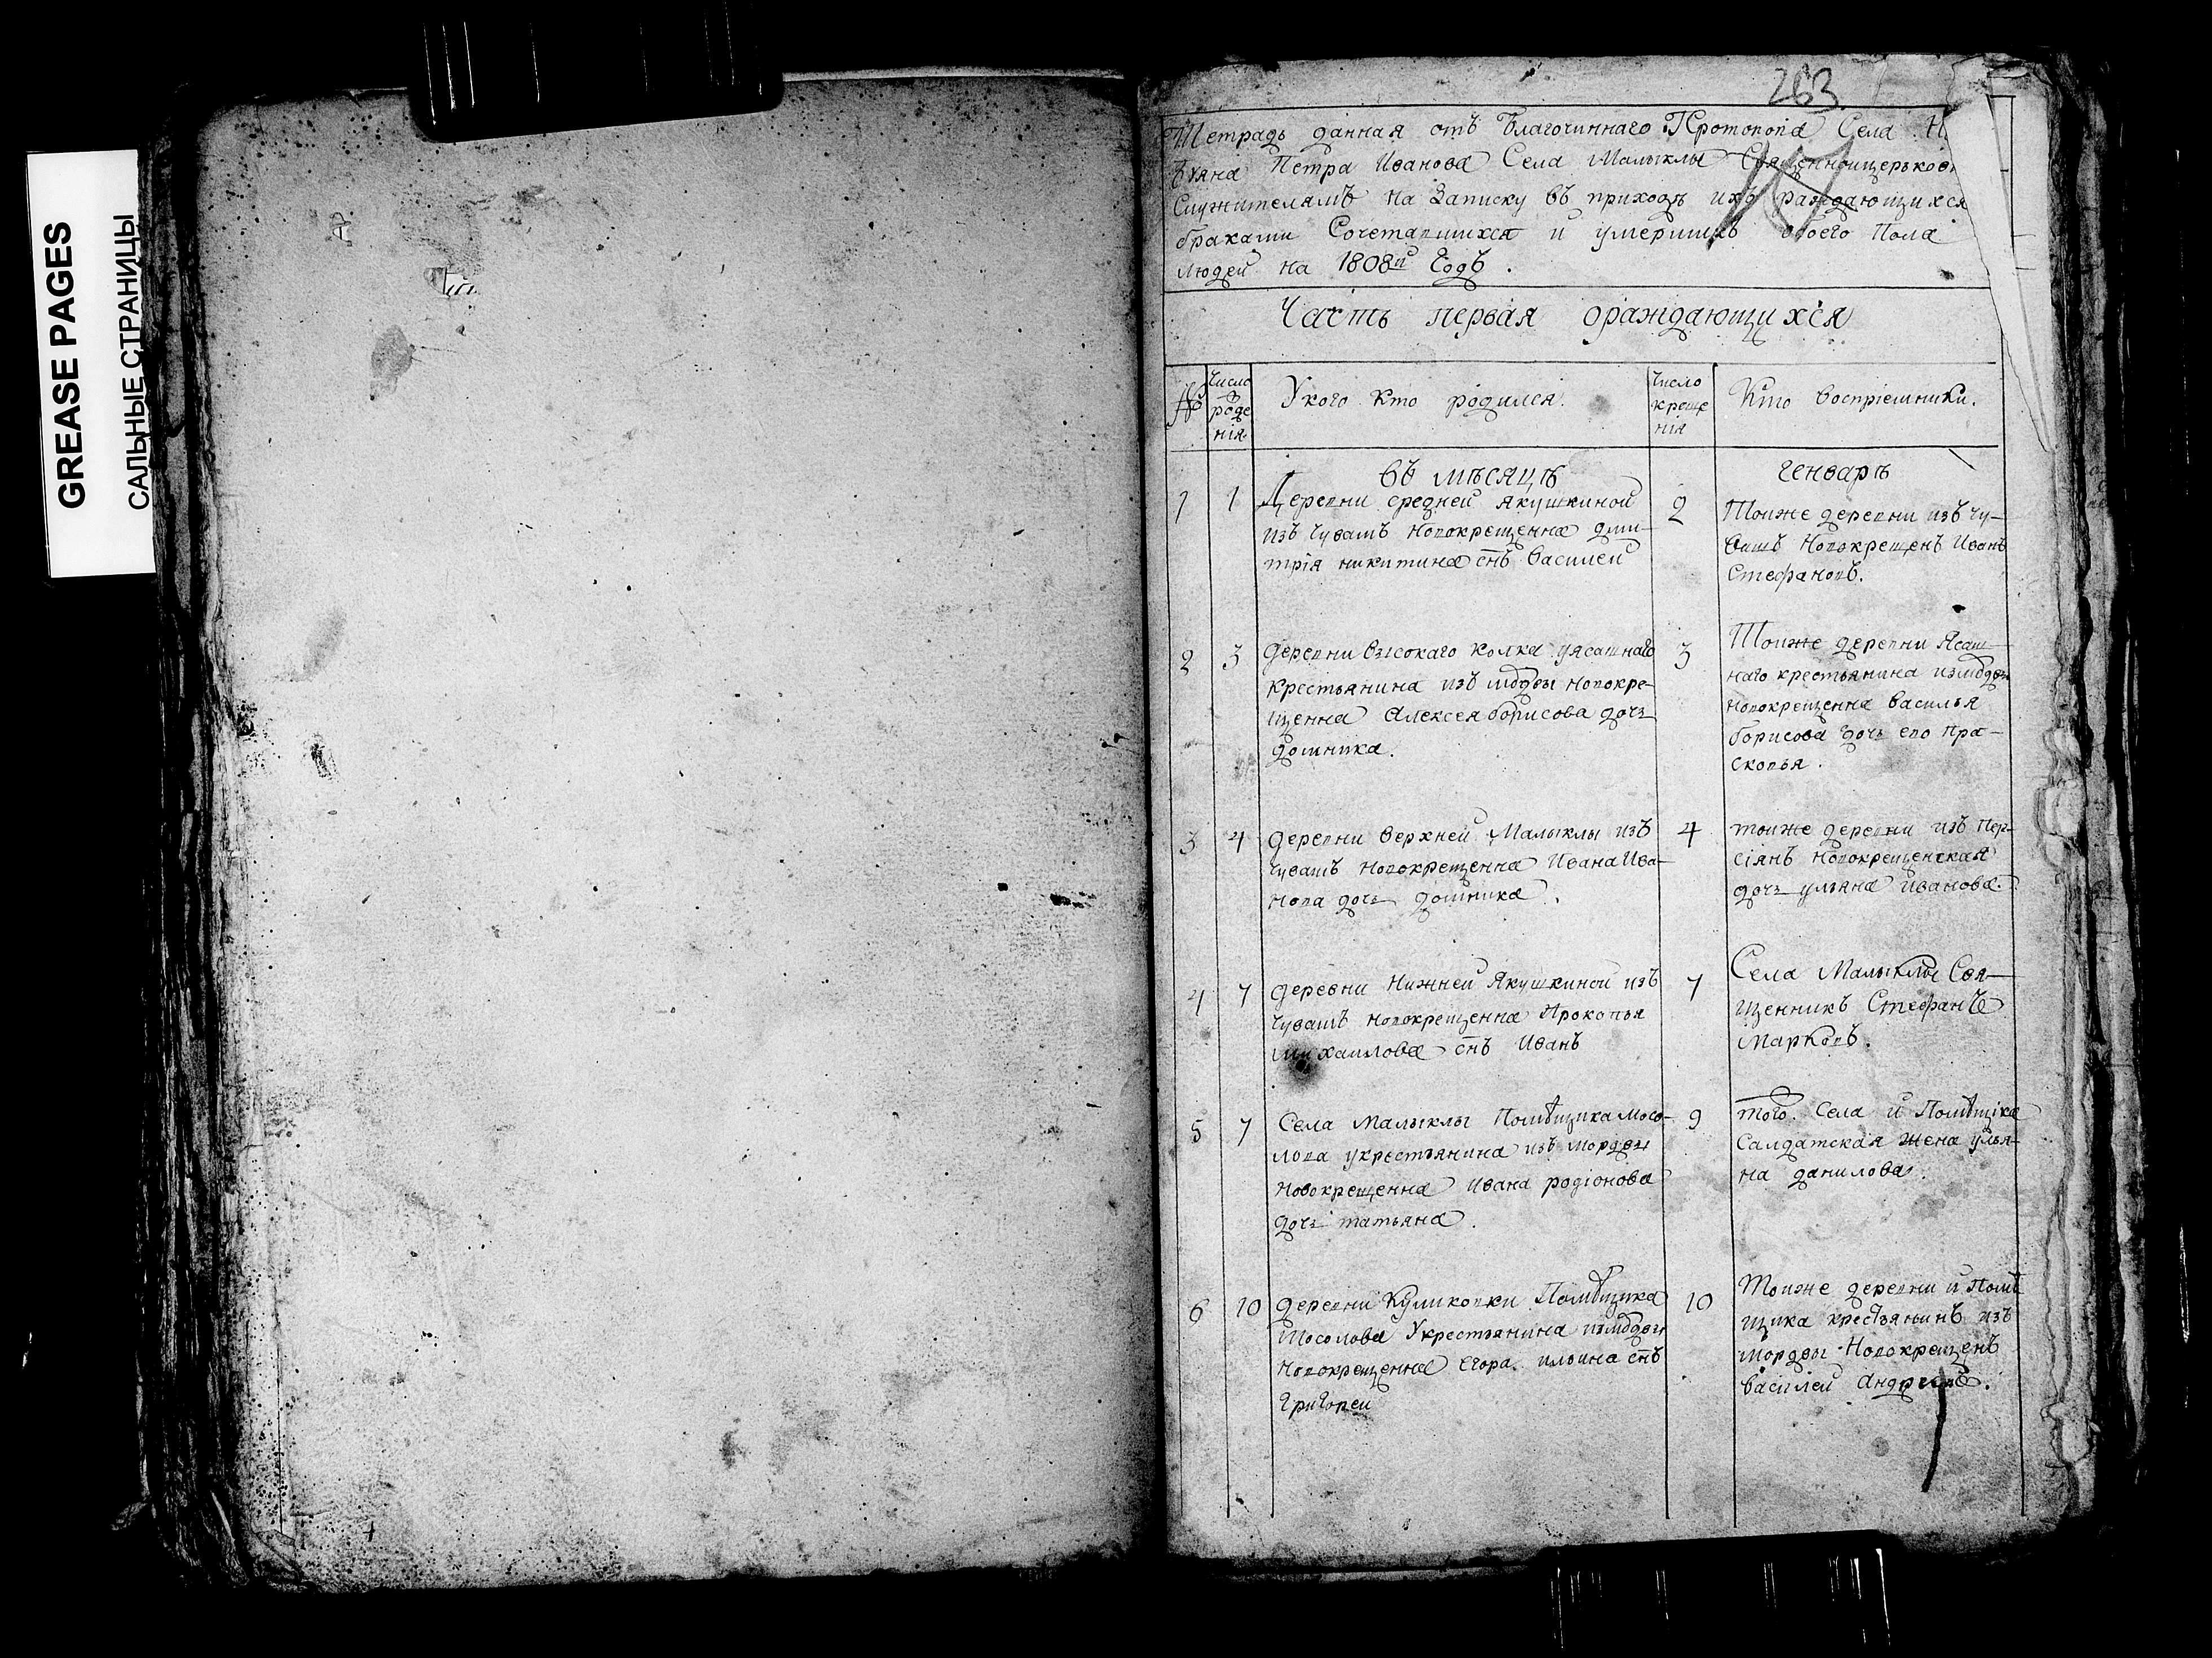 GREASE PAGES
САЛЬНЫЕ СТРАНИЦЫ
263
Тетрадь данная отъ Благочиннаго Протопопа Села Н
Петра Иванова Села Малыклы Священноцерьков
Служителямъ на Записку въ приходѣ ихъ раждающихся
браками Сочетавшихся и умершихъ обоего Пола
людей на 1808й Годъ.
Часть первая ораждающихся
№
Число роде нія
Укого Кто родился.
Число креще нія
Кто воспріемники.
въ мѣсяцѣ
генварѣ
1 1 Деревни средней якушкиной
изъ чувашъ Новокрещенна дми-
трія никитина снъ василей
2 Тоиже деревни изъ чу-
вашъ Новокрещенъ Иванъ
Стефановъ.
2 3 деревни высокаго колка уясашнаго
крестьянина изъ мордвы новокре-
щенна Алексея борисова дочь
домника.
3 Тоиже деревни Ясаш-
наго крестьянина измордвы
новокрещенна василья
борисова дочь ево пра-
сковья.
3 4 деревни верхней Малыклы изъ
чувашъ новокрещенна Ивана Ива-
нова дочь домника.
4 тоиже деревни изъ пер-
сіянъ новокрещенская
дочь ульяна иванова.
4 7 деревни Нижней Якушкиной изъ
чувашъ новокрещенна Прокопья
Михаилова снъ Иванъ
7 Села Малыклы Свя-
щенникъ Стефанъ
Марковъ.
5 7 Села малыклы Помѣщика мосо-
лова укрестьянина изъ мордвы
новокрещенна ивана родіонова
дочь татьяна.
9 того Села и Помѣщика
Салдатская жена улья-
на данилова.
6 10 деревни Куликовки Помѣщика
Мосолова Укрестьянина измордвы
Новокрещенна егора ильина снъ
григореи
10 Тоиже деревни и Помѣ
щика крестьянинъ изъ
мордвы Новокрещенъ
василеи